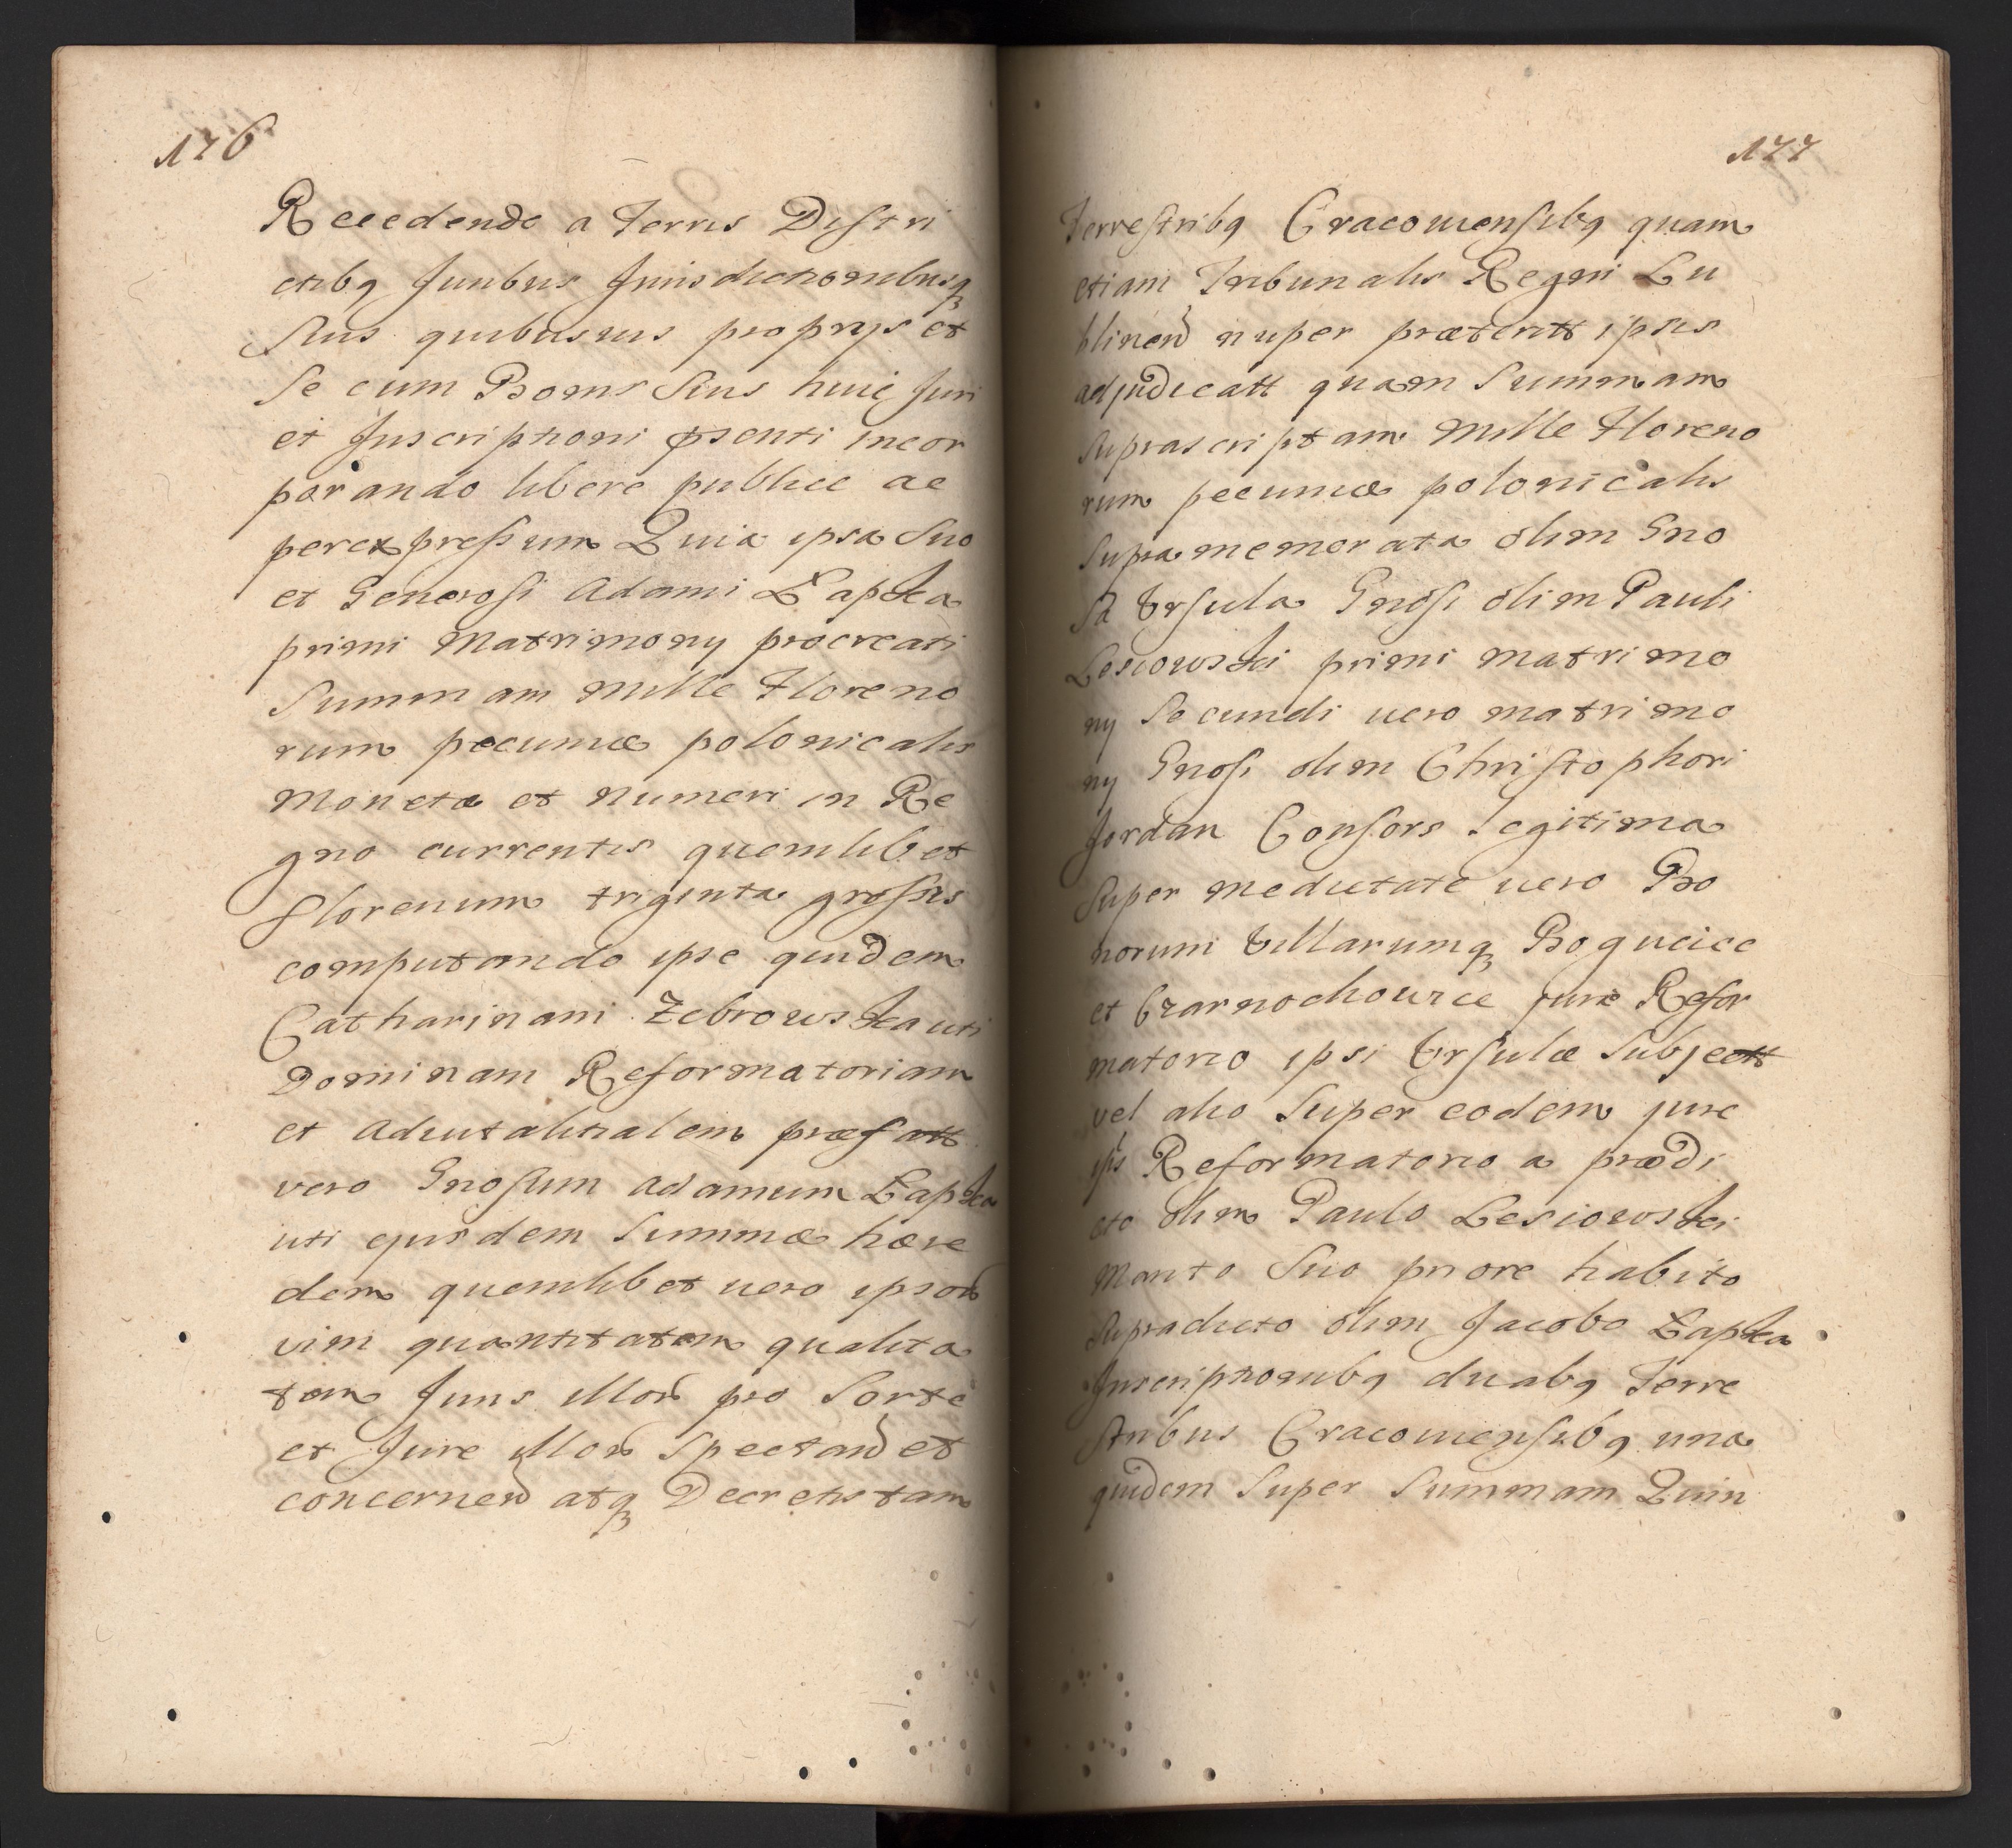 176
Recedendo a Terris Distri
ctibq Juribus Jurisdictionibusq
Suis quibusuis proprijs et
Se cum Bonis Suis huic Juri
et Inscriptioni psenti incor
porando libere publice ac
perexpressum Quia ipsa Suo
et Generosi Adami Łapka
primi Matrimony procreati
Summam Mille Floreno
rum pecuniæ polonicalis
Monetæ et Numeri in Re
gno currentis quemlibet
florenum triginta grossis
computando ipse quidem
Catharinam Zebrowska uti
Dominam Reformatoriam
et Aduitalitialem præfatt
vero Gnosum Adamum Łapka
uti ejusdem Summæ hære
dem quemlibet uero ipsor
vim quantitatem qualita
tem Juris illor pro Sorte
et Jure illor Spectan et
concernen atq Decretis tam
177
Terrestribq Cracouiensibq quam
etiam Tribunalis Regni Lu
blinen nuper præteritt ipsis
adjudicatt quam Summam
Suprascriptam Mille Floreno
rum pecuniæ polonicalis
Supra memorata olim Gno
sa Vrsula Gnosi olim Pauli
Lesiowski primi matrimo
ny Secundi uero matrimo
ny Gnosi olim Christophori
Jordan Consors Legitima
Super medietate uero Bo
norum Villarumq Bogucice
et Czarnochowice jure Refor
matorio ipsi Vrsulæ Subjectt
vel alio Super eodem jure
ips Reformatorio a prædi
cto olim Paulo Lesiowski
Marito Suo priore habito
Supradicto olim Jacobo Łapka
Inscriptionibq duabq Terre
stribus Cracouiensibq una
quidem Super Summam Quin